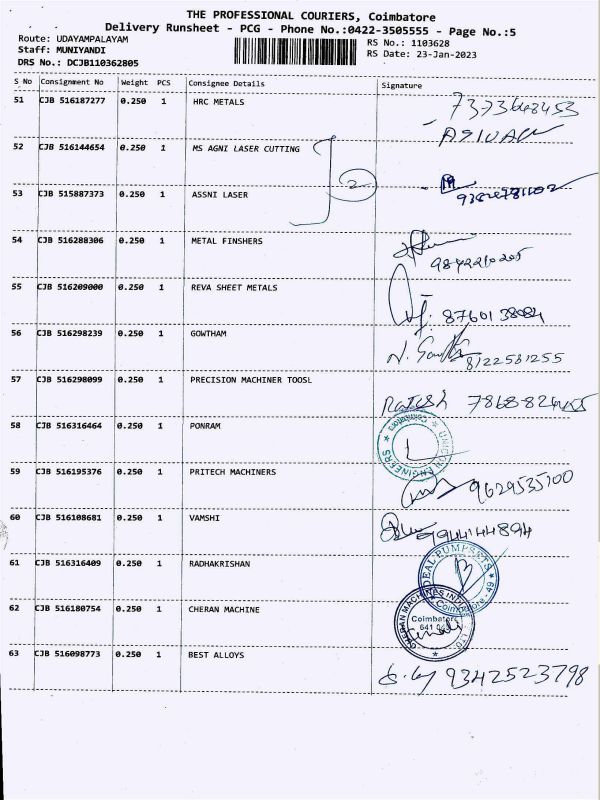 THE PROFESSIONAL COURIERS, Coimbatore
Delivery Runsheet - PCG - Phone No.:0422-3505555 - Page No.:5
Route: UDAYAMPALAYAM
RS No.: 1103628
Staff: MUNIYANDI
RS Date: 23-Jan-2023
DRS No.: DCJB110362805
S No Consignment No Weight PCS Consignee Details Signature
51 CJB 516187277 0.250 1 HRC METALS
52 CJB 516144654 0.250 1 MS AGNI LASER CUTTING
2
53 CJB 515887373 0.250 1 ASSNI LASER
54 CJB 516288306 0.250 1 METAL FINSHERS
9842210205
55 CJB 516209000 0.250 1 REVA SHEET METALS
8760138084
56 CJB 516298239 0.250 1 GOWTHAM
8122581255
57 CJB 516298099 0.250 1 PRECISION MACHINER TOOSL
58 CJB 516316464 0.250 1 PONRAM
ENGINEERS
Coimbatore
59 CJB 516195376 0.250 1 PRITECH MACHINERS
9629535100
60 CJB 516108681 0.250 1 VAMSHI
9944144894
61 CJB 516316409 0.250 1 RADHAKRISHAN
DEAL PUMPSETS
Coimbatore - 49
62 CJB 516180754 0.250 1 CHERAN MACHINE
CHERAN MACHINES
Coimbatore
63 CJB 516098773 0.250 1 BEST ALLOYS
9342523798